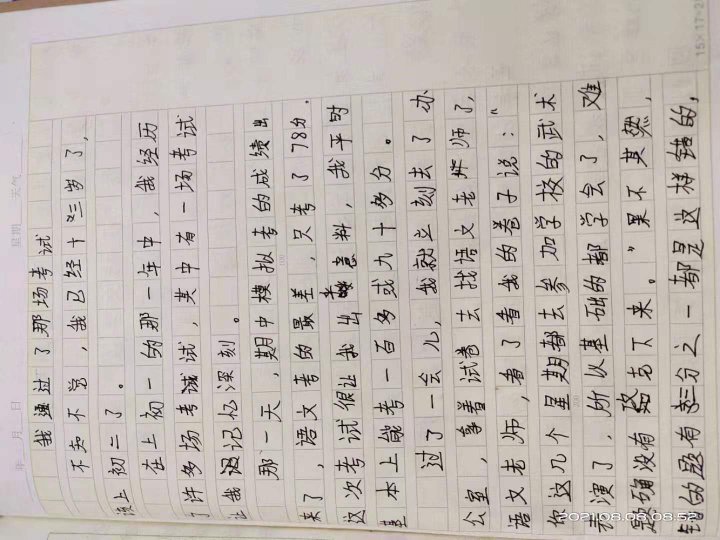 年 月 日 星期 天气
我经过了那场考试
不知不觉，我已经十三岁了，
该上初二了。
在上初一的那一年中，我经历
了许多场考试，其中有一场考试
让我记忆深刻。
那一天，期中模拟考的成绩出
来了，语文考的最差，只考了78分.
这次考试很让我出乎意料，我平时
基本上能考一百多或九十多分。
过了一会儿，我就立刻去了办
公室，拿着试卷去找语文老师了，
语文老师，看了看我的卷子说："
你这几个星期都去参加学校的武术
表演了，所以基础的都学会了，难
题确没有跟下来。"果不其然，
错的题有三分之一都是这样错的，
100
200
15×17=2
2021.08.08 08:52